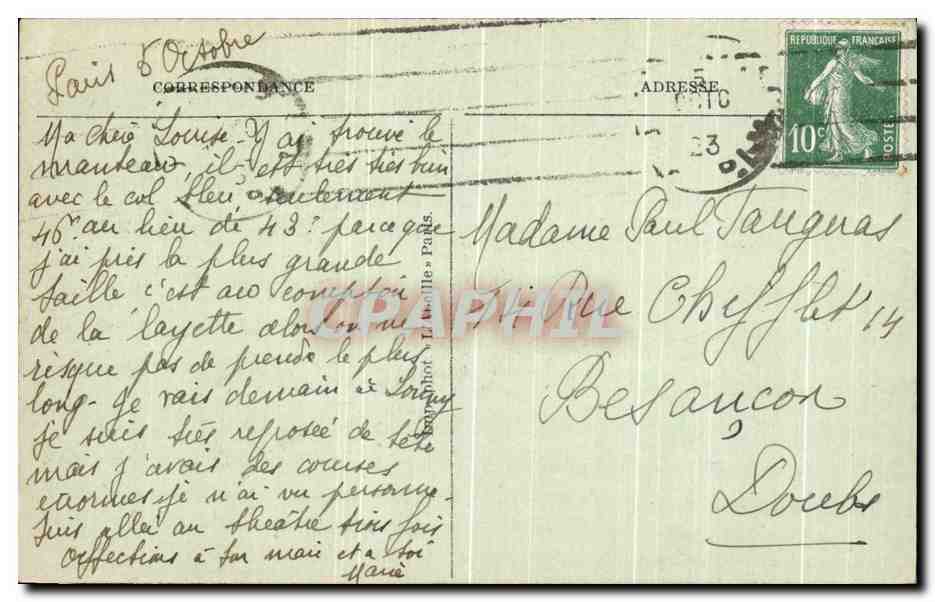 Paris 5 Octobre
CORRESPONDANCE
Ma chère Louise - J'ai trouvé le
manteau, il est très très bien
avec le col bleu seulement
46f au lieu de 43f parce que
j'ai pris la plus grande
taille c'est au comptoir
de la layette alors on ne
risque pas de prendre le plus
long - je vais demain à
je suis très reposée de tête
mais j'avais des courses
énormes je n'ai vu personne -
Suis allée au théâtre trois fois
Affections à ton mari et a toi
Marie
Lumiphot « L'Abeille » Paris.
CPAPHIL
ADRESSE
OCTO
23
REPUBLIQUE FRANÇAISE
10c
POSTES
Madame Paul
14 Rue Chifflet 14
Besançon
Doubs